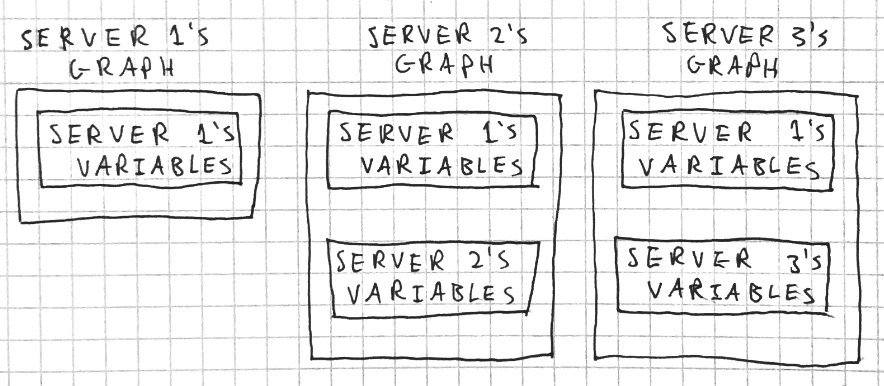 SERVER 1's
GRAPH
SERVER 1's
VARIABLES
SERVER 2's
GRAPH
SERVER 1's
VARIABLES
SERVER 2's
VARIABLES
SERVER 3's
GRAPH
SERVER 1's
VARIABLES
SERVER 3's
VARIABLES